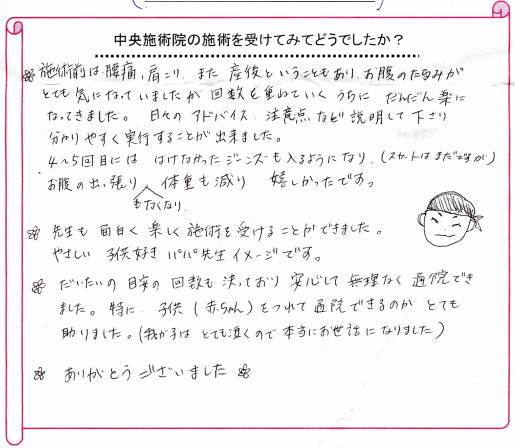 中央施術院の施術を受けてみてどうでしたか？
施術前は腰痛、肩こり、また産後ということもあり、お腹のたるみが
とても気になっていましたが回数を重ねていくうちにだんだん楽に
なってきました。日々のアドバイス、注意点など説明して下さり
分かりやすく実行することが出来ました。
4〜5回目にははけなかったジーンズも入るようになり、(スカートはまだですが)
お腹の出っ張りもなくなり、体重も減り嬉しかったです。
先生も面白く楽しく施術を受けることができました。
やさしい子供好きパパ先生イメージです。
だいたいの目安の回数も決っており安心して無理なく通院でき
ました。特に、子供(赤ちゃん)をつれて通院できるのがとても
助りました。(我が子はとても泣くので本当にお世話になりました)
ありがとうございました